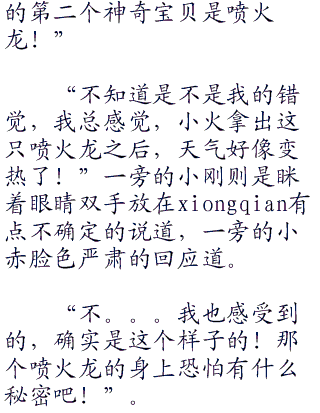 的第二个神奇宝贝是喷火
龙！”
“不知道是不是我的错
觉，我总感觉，小火拿出这
只喷火龙之后，天气好像变
热了！”一旁的小刚则是眯
着眼睛双手放在xiongqian有
点不确定的说道，一旁的小
赤脸色严肃的回应道。
“不。。。我也感受到
的，确实是这个样子的！那
个喷火龙的身上恐怕有什么
秘密吧！”。